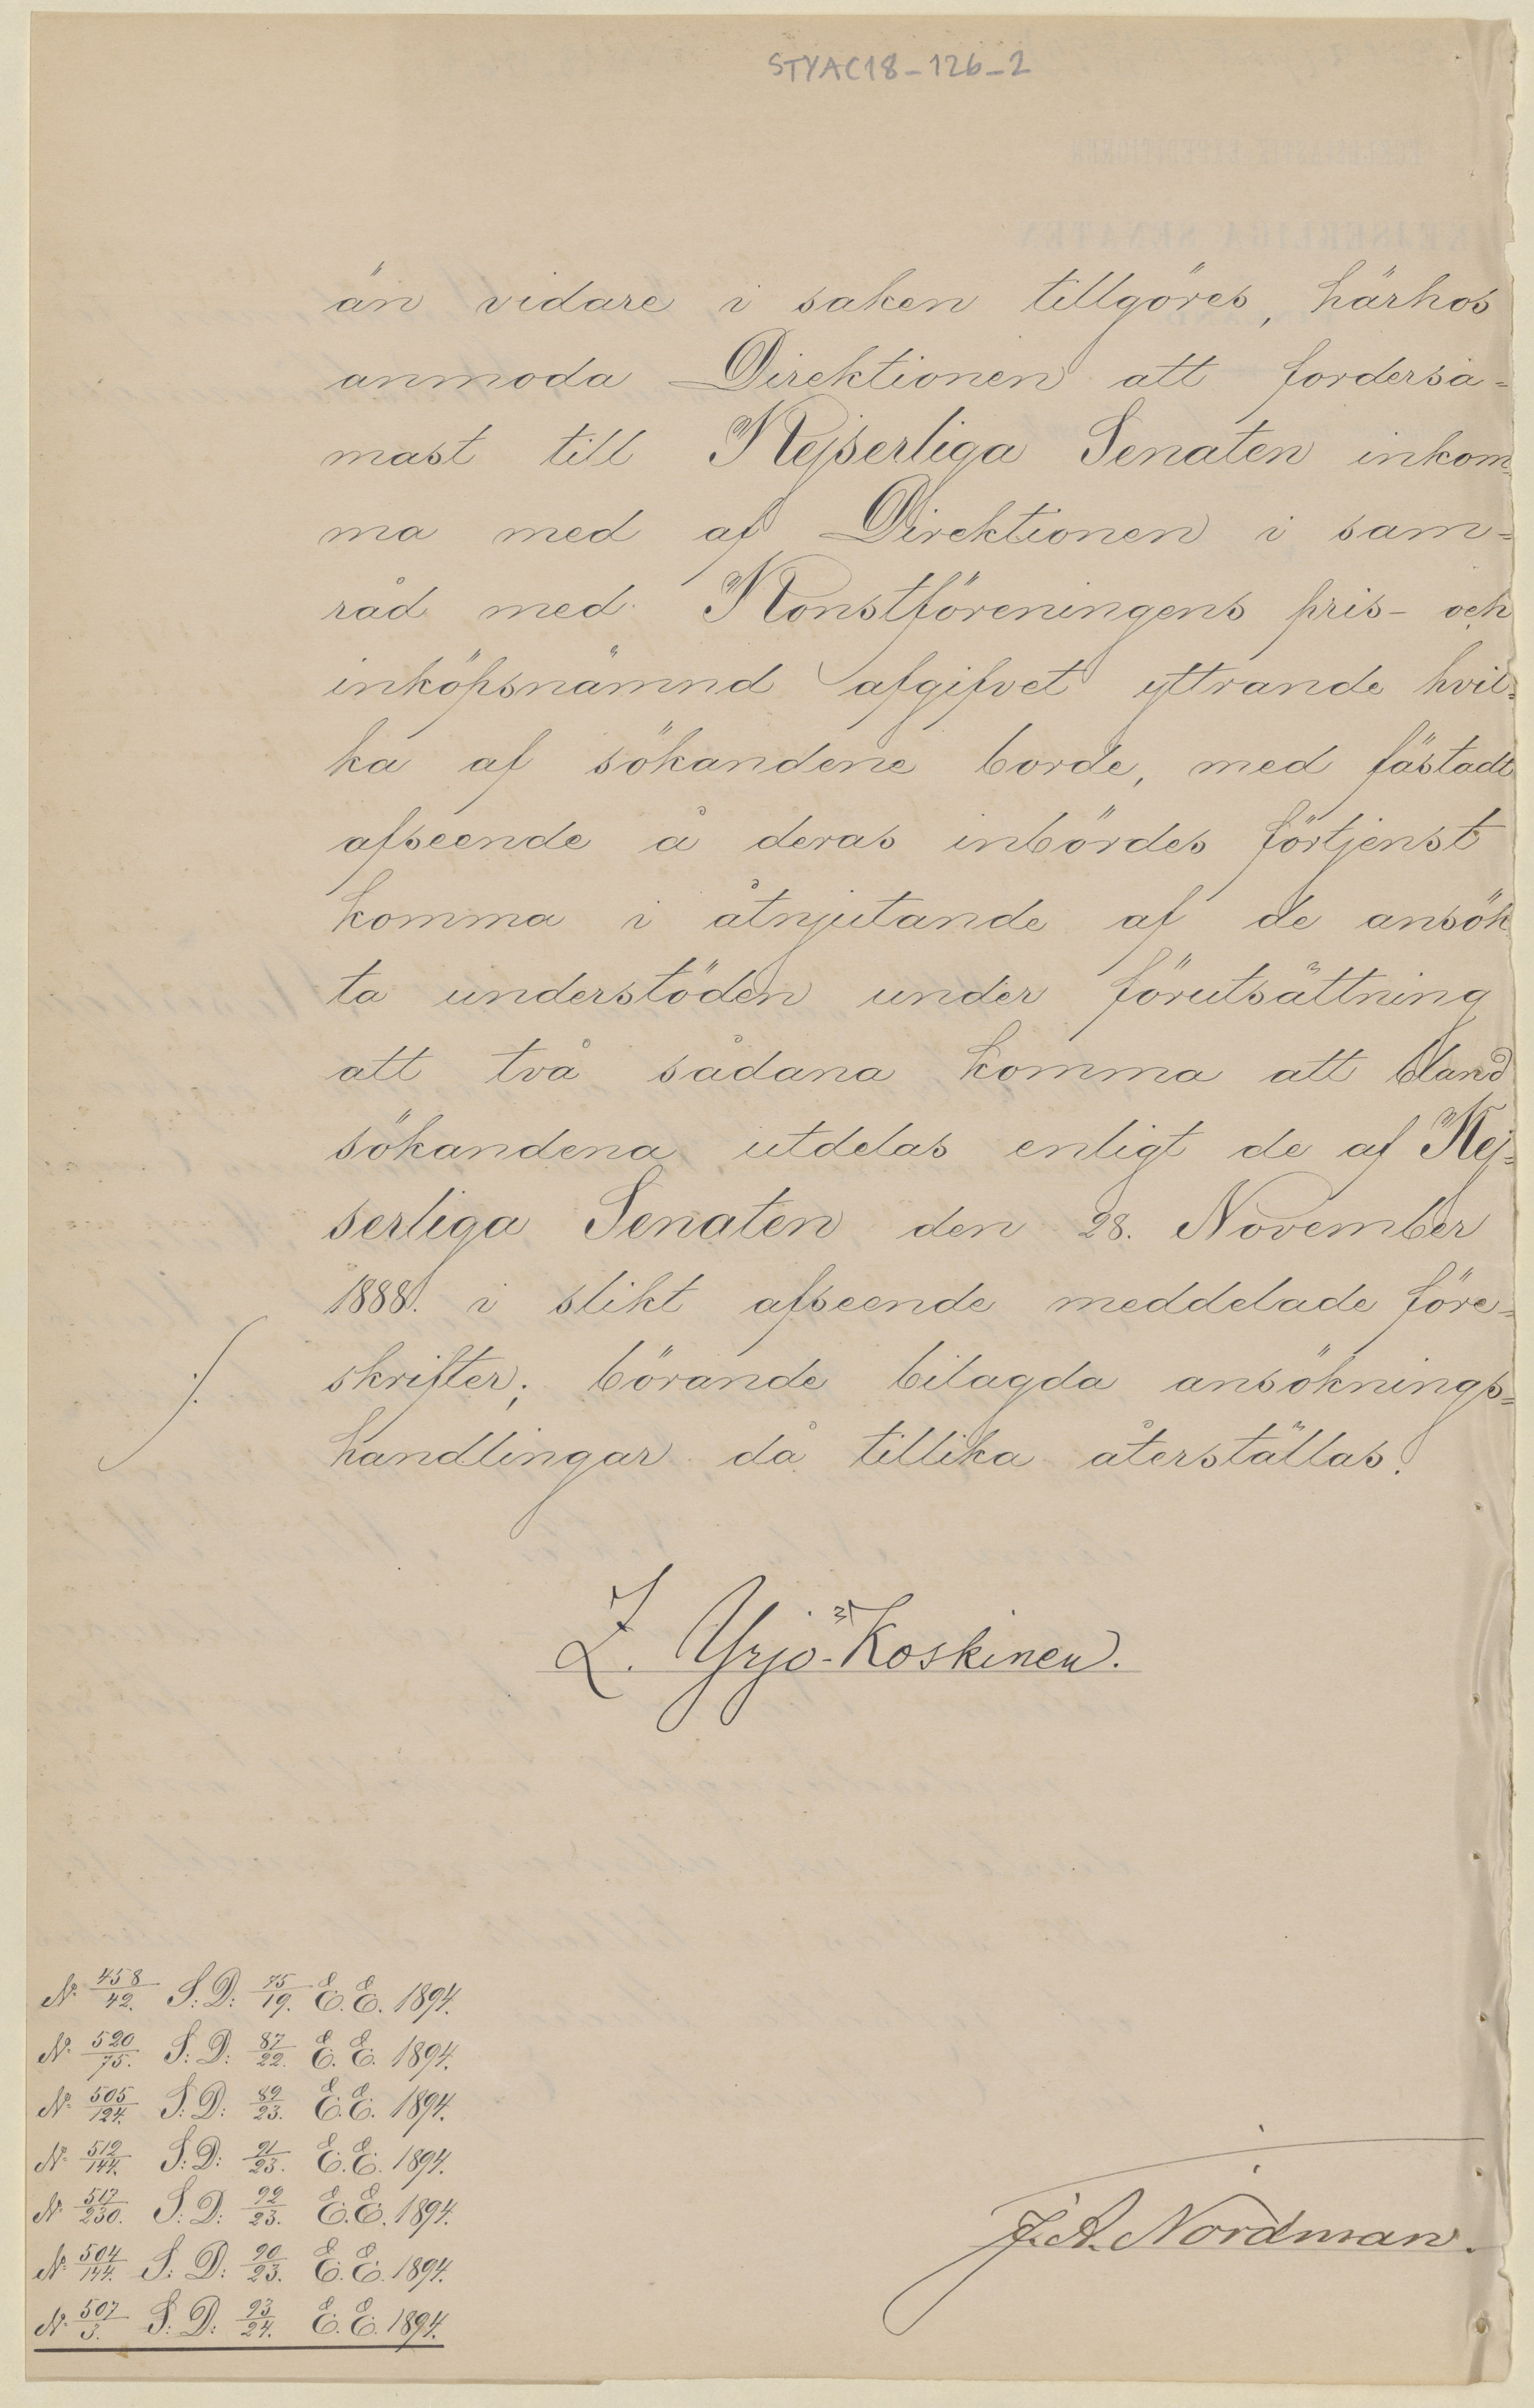 STYAC18-126-2
än vidare i saken tillgöres, härhos
anmoda Direktionen att fordersa-
mast till Kejserliga Senaten inkom-
ma med af Direktionen i sam-
råd med Konstföreningens pris- och
inköpsnämnd afgifvet yttrande hvil-
ka af sökandene borde, med fästadt
afseende å deras inbördes förtjenst
komma i åtnjutande af de ansök
ta understöden under förutsättning
att två sådana komma att bland
sökandena utdelas enligt de af Kej-
serliga Senaten den 28. November
1888. i slikt afseende meddelade före-
skrifter; börande bilagda ansöknings-
handlingar då tillika återställas.
Z. Yrjö-Koskinen.
N: 458/42. S: D: 75/19. E. E. 1894.
N: 520/75. S: D: 87/22. E. E. 1894.
N: 505/124. S: D: 89/23. E. E. 1894.
N: 512/144. S: D: 91/23. E. E. 1894.
N: 517/230. S: D: 92/23. E. E. 1894.
N: 504/144. S: D: 90/23. E. E. 1894.
N: 507/3. S: D: 93/24. E. E. 1894.
J. A. Nordman.